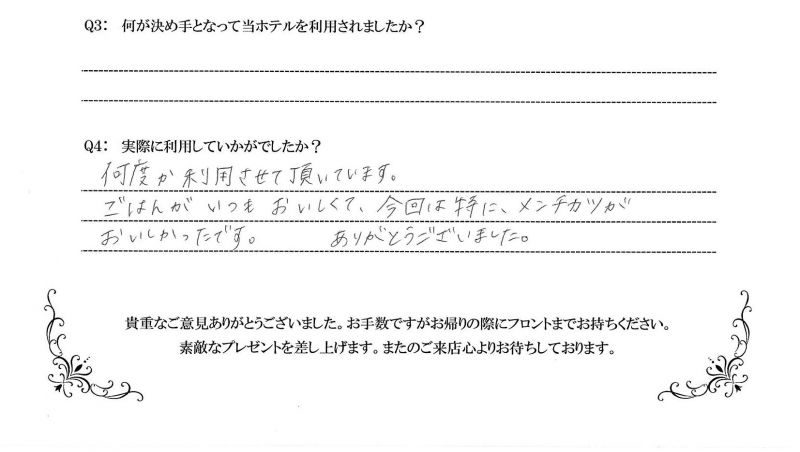 Q3: 何が決め手となって当ホテルを利用されましたか？
Q4: 実際に利用していかがでしたか？
何度か利用させて頂いています。
ごはんがいつもおいしくて、今回は特に、メンチカツが
おいしかったです。 ありがとうございました。
貴重なご意見ありがとうございました。お手数ですがお帰りの際にフロントまでお持ちください。
素敵なプレゼントを差し上げます。またのご来店心よりお待ちしております。